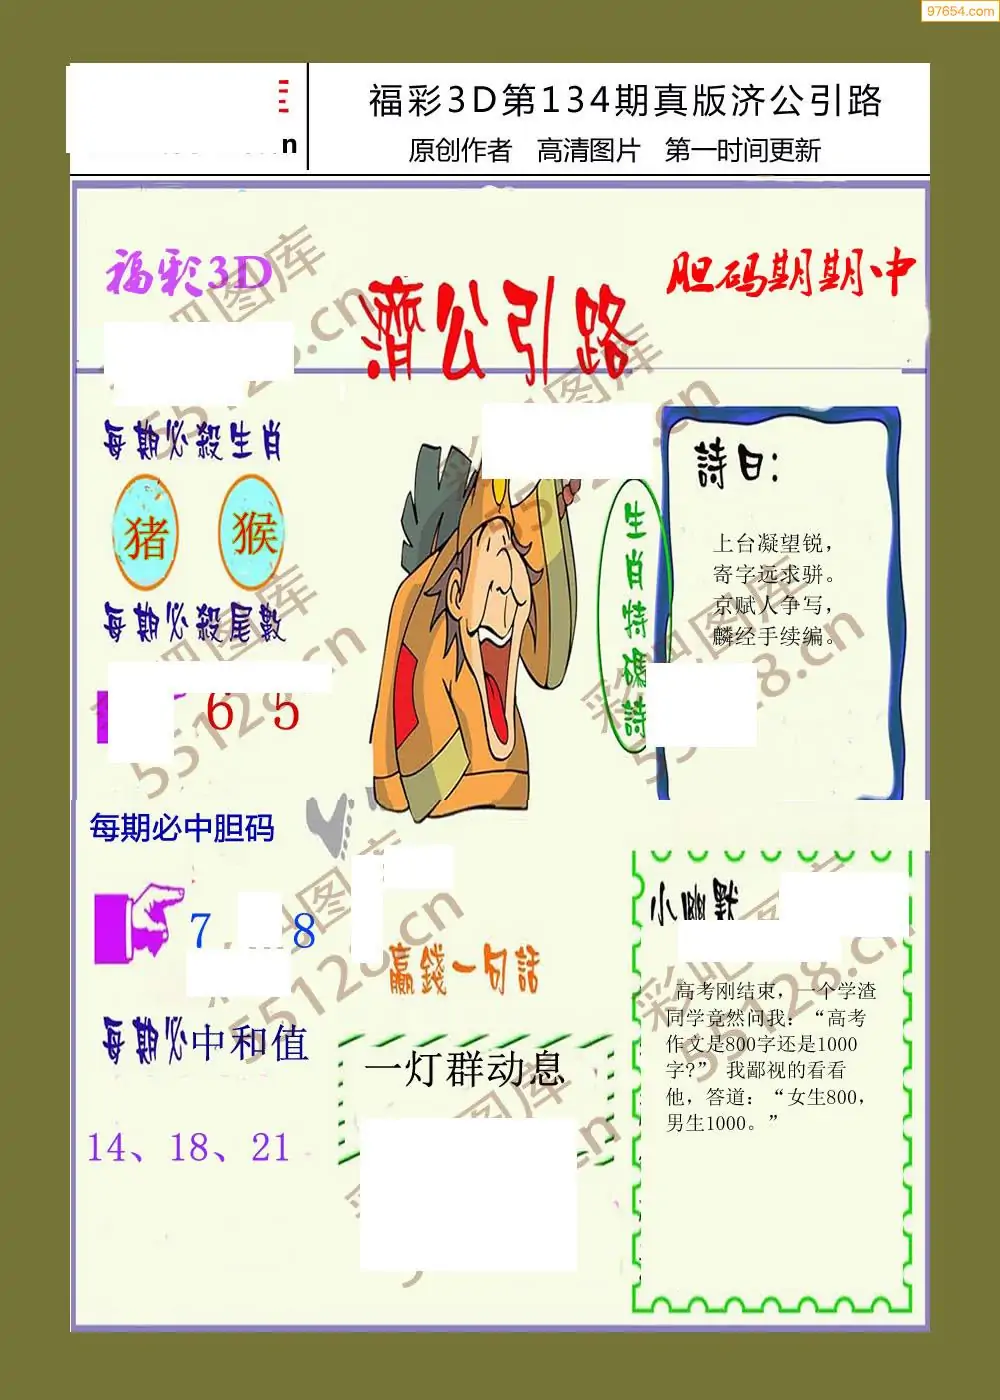 97654.com
福彩3D第134期真版济公引路
原创作者 高清图片 第一时间更新
福彩3D
濟公引路
胆码期期中
每期必殺生肖
猪 猴
每期必殺尾數
6 5
生肖特碼詩
詩曰:
上台凝望锐，
寄字远求骈。
京赋人争写，
麟经手续编。
每期必中胆码
7 8
每期必中和值
14、18、21
赢錢一句話
一灯群动息
小幽默
高考刚结束，一个学渣
同学竟然问我：“高考
作文是800字还是1000
字?” 我鄙视的看看
他，答道：“女生800，
男生1000。”
彩吧图库
55128.cn